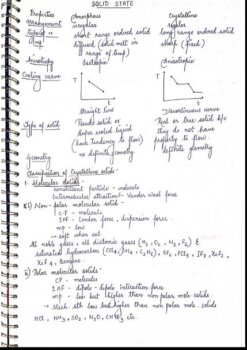 SOLID STATE
Properties Amorphous Crystalline
arrangement irregular regular
short range ordered solid long range ordered solid
diffused (and melt in sharp (fixed)
range of temp)
Anisotropy Isotropic Anisotropic
Cooling curve
T T
Straight line Discontinuous curve
Type of solid Pseudo solid or Real or true solid b/c
super cooled liquid they do not have
(have tendency to flow) property to flow
Geometry no definite geometry definite geometry
Classification of Crystalline solids:
1. Molecular solids:
constituent particle - molecule
Intermolecular attraction - Vander Waal force
(i) Non-polar molecular solid -
C.P - molecule
IAF - London force, dispersion force.
mp - low
→ soft when cut
All noble gases, all diatomic gases (H2, O2, N2, F2) &
saturated hydrocarbon (CCl4, CH4, C2H6), SF6, PCl5, IF7, XeF2,
XeF4, Benzene.
(ii) Polar molecular solids:
CP - molecule
IAF - dipole-dipole interaction force
mp - low but higher than non polar mole. solids
→ Mech. sth. low but higher than non polar mole. solids
HCl, NH3, SO2, H2O, etc.